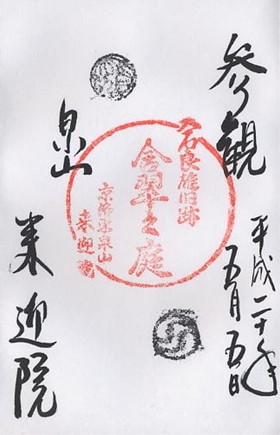 参観
平成二十年
五月五日
大石良雄旧跡
含翠之庭
来迎院
泉山
来迎院